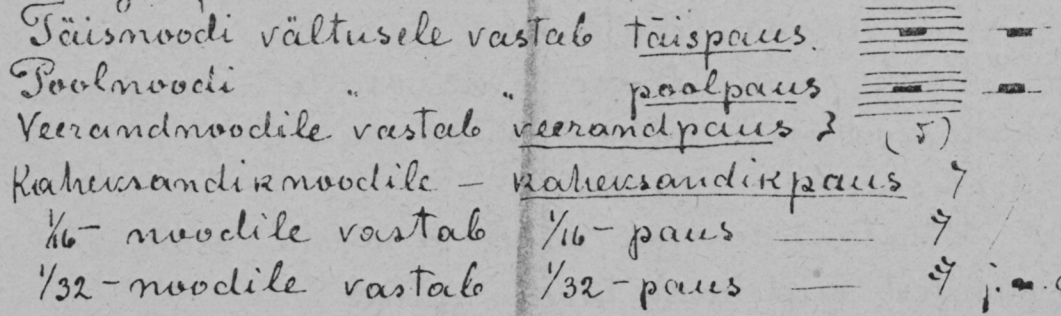 Täisnoodi vältusele vastab täispaus.
Poolnoodi " " poolpaus
Veerandnoodile vastab veerandpaus
Kaheksandiknoodile – kaheksandikpaus
1/16 – noodile vastab 1/16 – paus —
1/32 – noodile vastab 1/32 – paus — j.n.